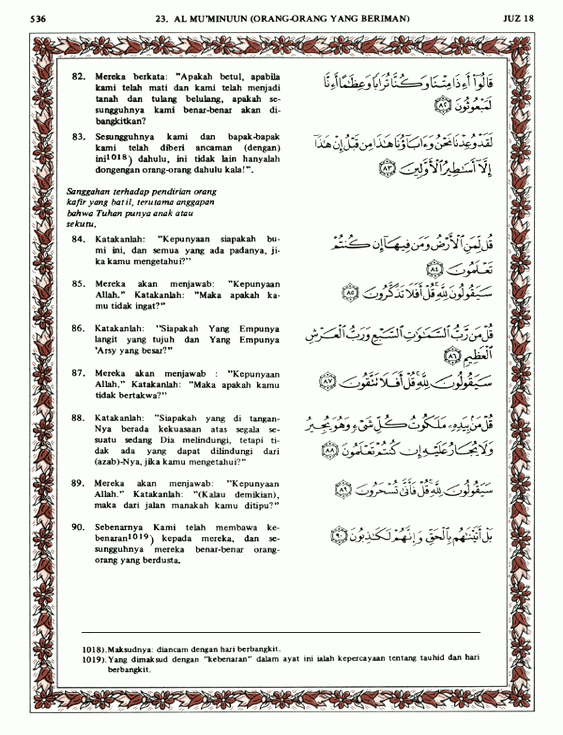 536 23. AL MU'MINUUN (ORANG-ORANG YANG BERIMAN) JUZ 18
82. Mereka berkata: "Apakah betul, apabila
kami telah mati dan kami telah menjadi
tanah dan tulang belulang, apakah se-
sungguhnya kami benar-benar akan di-
bangkitkan?
قَالُوٓا۟ أَءِذَا مِتْنَا وَكُنَّا تُرَابًا وَعِظَٰمًا أَءِنَّا
لَمَبْعُوثُونَ ﴿٨٢﴾
83. Sesungguhnya kami dan bapak-bapak
kami telah diberi ancaman (dengan)
ini1018) dahulu, ini tidak lain hanyalah
dongengan orang-orang dahulu kala!".
لَقَدْ وُعِدْنَا نَحْنُ وَءَابَآؤُنَا هَٰذَا مِن قَبْلُ إِنْ هَٰذَآ
إِلَّآ أَسَٰطِيرُ ٱلْأَوَّلِينَ ﴿٨٣﴾
Sanggahan terhadap pendirian orang
kafir yang batil, terutama anggapan
bahwa Tuhan punya anak atau
sekutu.
84. Katakanlah: "Kepunyaan siapakah bu-
mi ini, dan semua yang ada padanya, ji-
ka kamu mengetahui?"
قُل لِّمَنِ ٱلْأَرْضُ وَمَن فِيهَآ إِن كُنتُمْ
تَعْلَمُونَ ﴿٨٤﴾
85. Mereka akan menjawab: "Kepunyaan
Allah." Katakanlah: "Maka apakah ka-
mu tidak ingat?"
سَيَقُولُونَ لِلَّهِ قُلْ أَفَلَا تَذَكَّرُونَ ﴿٨٥﴾
86. Katakanlah: "Siapakah Yang Empunya
langit yang tujuh dan Yang Empunya
'Arsy yang besar?"
قُلْ مَن رَّبُّ ٱلسَّمَٰوَٰتِ ٱلسَّبْعِ وَرَبُّ ٱلْعَرْشِ
ٱلْعَظِيمِ ﴿٨٦﴾
87. Mereka akan menjawab : "Kepunyaan
Allah." Katakanlah: "Maka apakah kamu
tidak bertakwa?"
سَيَقُولُونَ لِلَّهِ قُلْ أَفَلَا تَتَّقُونَ ﴿٨٧﴾
88. Katakanlah: "Siapakah yang di tangan-
Nya berada kekuasaan atas segala se-
suatu sedang Dia melindungi, tetapi ti-
dak ada yang dapat dilindungi dari
(azab)-Nya, jika kamu mengetahui?"
قُلْ مَنۢ بِيَدِهِۦ مَلَكُوتُ كُلِّ شَىْءٍ وَهُوَ يُجِيرُ
وَلَا يُجَارُ عَلَيْهِ إِن كُنتُمْ تَعْلَمُونَ ﴿٨٨﴾
89. Mereka akan menjawab: "Kepunyaan
Allah." Katakanlah: "(Kalau demikian),
maka dari jalan manakah kamu ditipu?"
سَيَقُولُونَ لِلَّهِ قُلْ فَأَنَّىٰ تُسْحَرُونَ ﴿٨٩﴾
90. Sebenarnya Kami telah membawa ke-
benaran1019) kepada mereka, dan se-
sungguhnya mereka benar-benar orang-
orang yang berdusta.
بَلْ أَتَيْنَٰهُم بِٱلْحَقِّ وَإِنَّهُمْ لَكَٰذِبُونَ ﴿٩٠﴾
1018). Maksudnya: diancam dengan hari berbangkit.
1019). Yang dimaksud dengan "kebenaran" dalam ayat ini ialah kepercayaan tentang tauhid dan hari
berbangkit.